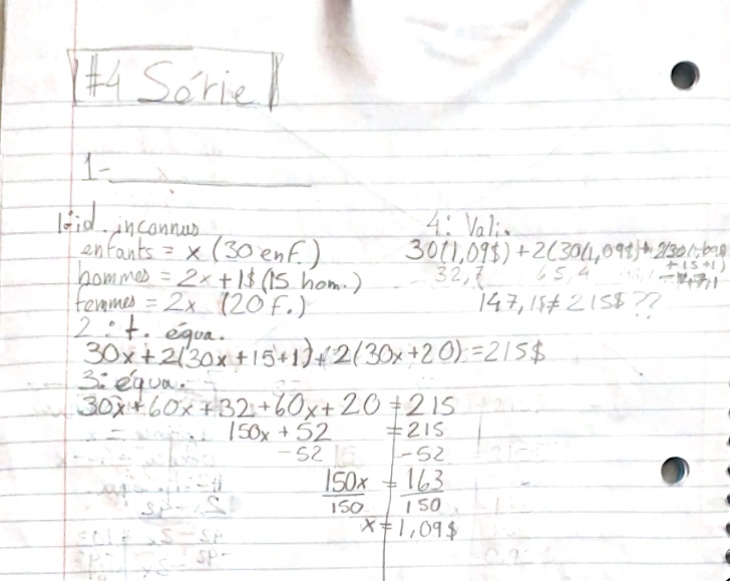 #4 Série
1-
1: id. inconnus
enfants = x (30 enf.)
hommes = 2x + 1$ (15 hom.)
femmes = 2x (20 f.)
2: t. équa.
30x + 2(30x + 15 + 1) + 2(30x + 20) = 215$
3: équa.
30x + 60x + 32 + 60x + 20 = 215
150x + 52 = 215
-52 -52
150x = 163
150 150
x = 1,09$
4: Vali.
30(1,09$) + 2(30(1,09$) +
+15+1)
32,7 65,4
147,1$ ≠ 215$ ??